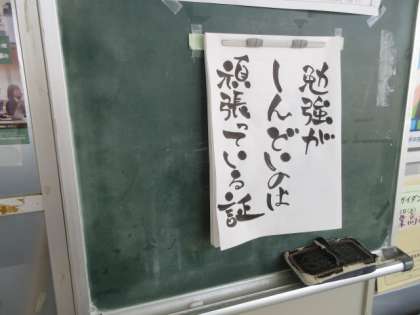 勉強が
しんどいのは
頑張っている証
ガイダン